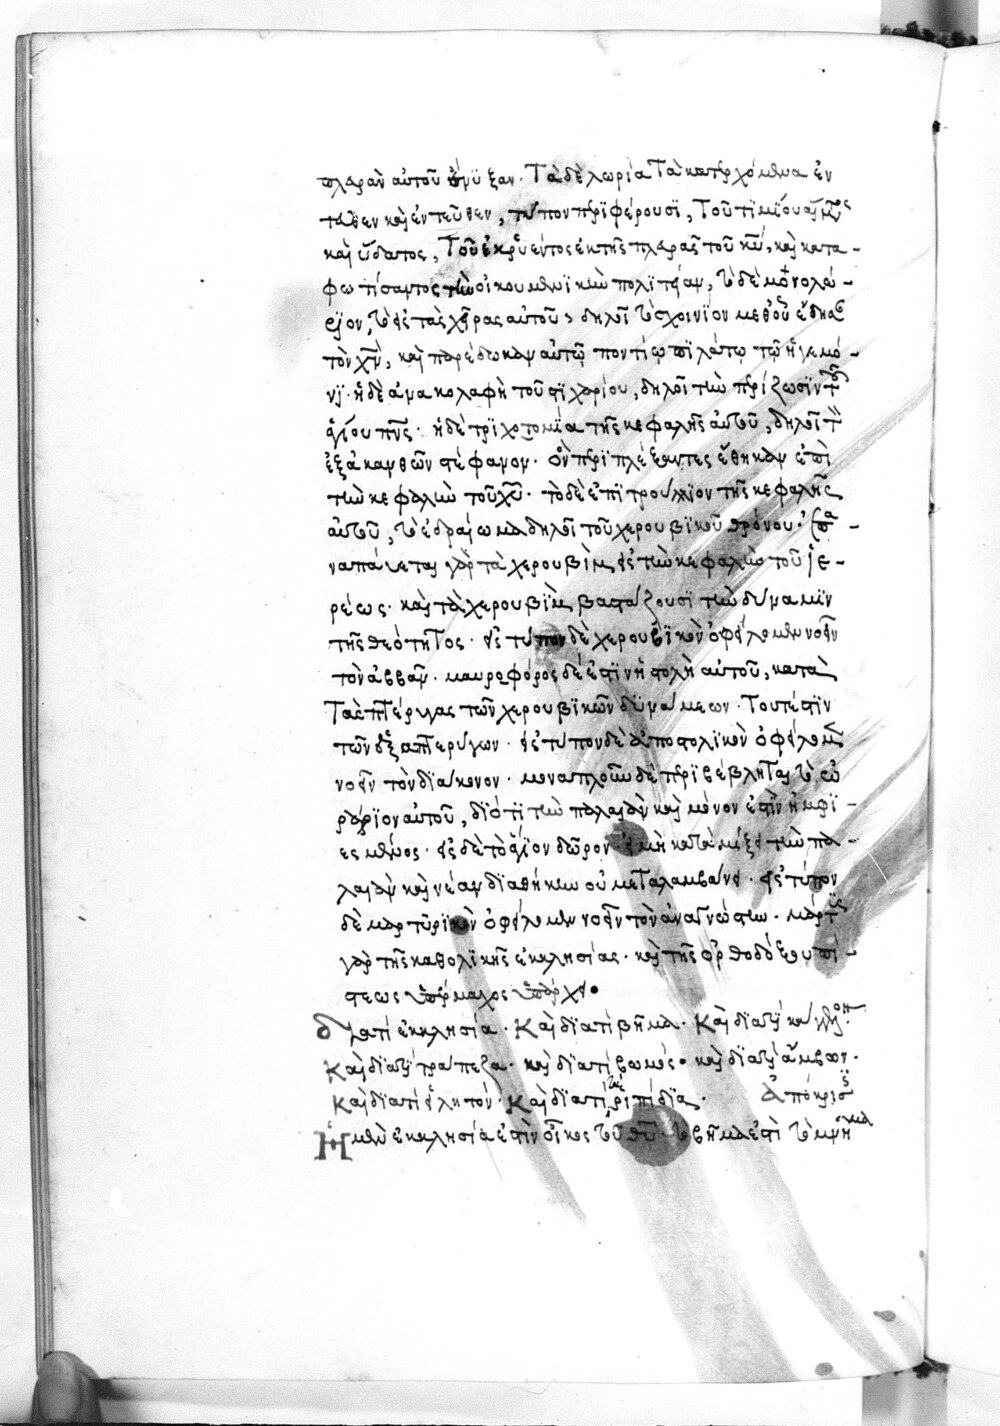 πλευρὰν αὐτοῦ ἔνυξαν. Τὰ δὲ λωρία Τὰ κατερχόμενα ἐν
ταῦθεν καὶ ἐντεῦθεν, τύπον περιφέρουσι, Τοῦ τιμίου αἵματος
καὶ ὕδατος, Τοῦ ἐκρεύσαντος ἐκ τῆς πλευρᾶς τοῦ κυ, καὶ κατα-
φωτίσαντος τὴν οἰκουμενικὴν πολιτείαν, τὸ δὲ
τὸ εἰς τὰς χεῖρας αὐτοῦ, δηλοῖ τὸ σχοινίον μεθ' οὗ ἔδησαν
τὸν χν, καὶ παρέδωκαν αὐτῷ ποντίῳ πιλάτῳ τῷ ἡγεμό-
νι. ἡ δὲ ἀνακολαφὴ τοῦ στιχαρίου, δηλοῖ τὴν περίζωσιν τοῦ
ἁγίου πνς. ἡ δὲ τριχοτομία τῆς κεφαλῆς αὐτοῦ, δηλοῖ τὸν
ἐξ ἀκανθῶν στέφανον. ὃν περιπλέξαντες ἔθηκαν ἐπὶ
τὴν κεφαλὴν τοῦ χυ. τὸ δὲ ἐπιτρούλλιον τῆς κεφαλῆς
αὐτοῦ, τὸ ἑδραίωμα δηλοῖ τοῦ χερουβικοῦ θρόνου.
ναπαύεται γὰρ τὰ χερουβὶμ εἰς τὴν κεφαλὴν τοῦ ἱε-
ρέως. καὶ τὰ χερουβὶμ βαστάζουσι τὴν δύναμιν
τῆς θεότητος. εἰς τύπον δὲ χερουβικὸν ὀφείλομεν νοεῖν
τὸν ἀββᾶν. μαυροφόρος δέ ἐστιν ἡ στολὴ αὐτοῦ, κατὰ
Τὰς πτέρυγας τῶν χερουβικῶν δυνάμεων. Τουτέστιν
τῶν ἑξαπτερύγων. εἰς τύπον δὲ ἀποστολικὸν ὀφείλομεν
νοεῖν τὸν διάκονον. μοναπλοῦν δὲ περιβέβληται τὸ ὠ
ράριον αὐτοῦ, διότι τὴν παλαιὰν καὶ μόνον ἐστὶν ἠμφι-
εσμένος. εἰς δὲ τὸ ἅγιον δῶρον εἰ μὴ καταμίξει τὴν πα-
λαιὰν καὶ νέαν διαθήκην οὐ μεταλαμβάνει. εἰς τύπον
δὲ μαρτυρικὸν ὀφείλομεν νοεῖν τὸν ἀναγνώστην. μάρτυς
γὰρ τῆς καθολικῆς ἐκκλησίας. καὶ τῆς ὀρθοδόξου πί-
στεως ὑπέρμαχος ὑπάρχει.
διατί ἐκκλησία. Καὶ διατί βῆμα. Καὶ διατί
Καὶ διατί τράπεζα. καὶ διατί βωμός. καὶ διατί ἄμβων.
Καὶ διατί εἰλητόν. Καὶ διατί ριπίδια. Ἀπόκρισις
Ἡ μὲν ἐκκλησία ἐστὶν οἶκος τοῦ θυ. τὸ βῆμα ἐστὶ τὸ μνῆμα